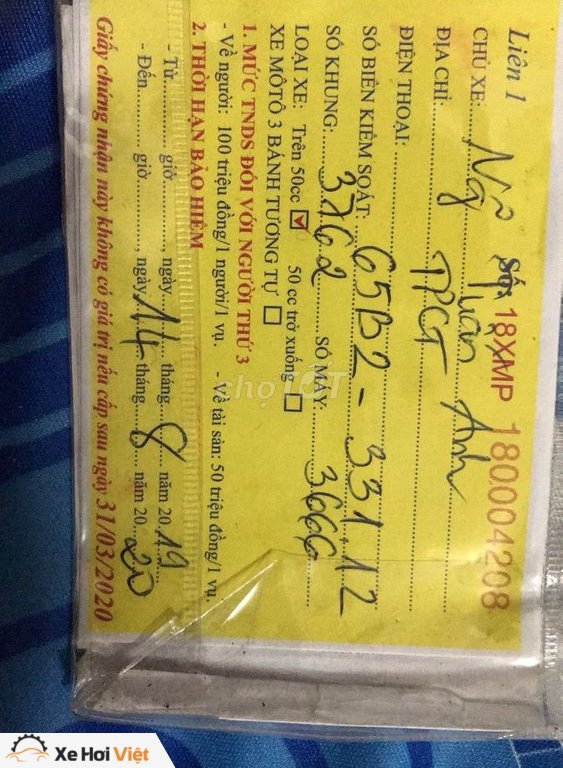 Liên 1
Số: 18XMP 180004208
CHỦ XE: Ng Tuấn Anh
ĐỊA CHỈ: TPCT
ĐIỆN THOẠI:
SỐ BIỂN KIỂM SOÁT: 65B2-331.12
SỐ KHUNG: 3762 SỐ MÁY: 3666
LOẠI XE: Trên 50cc 50 cc trở xuống
XE MÔTÔ 3 BÁNH TƯƠNG TỰ
1. MỨC TNDS ĐỐI VỚI NGƯỜI THỨ 3
- Về người: 100 triệu đồng/1 người/1 vụ. - Về tài sản: 50 triệu đồng/1 vụ.
2. THỜI HẠN BẢO HIỂM
- Từ giờ, ngày 14 tháng 8 năm 20 19
- Đến giờ, ngày tháng năm 20 20
Giấy chứng nhận này không có giá trị nếu cấp sau ngày 31/03/2020
chợTỐT
Xe Hơi Việt